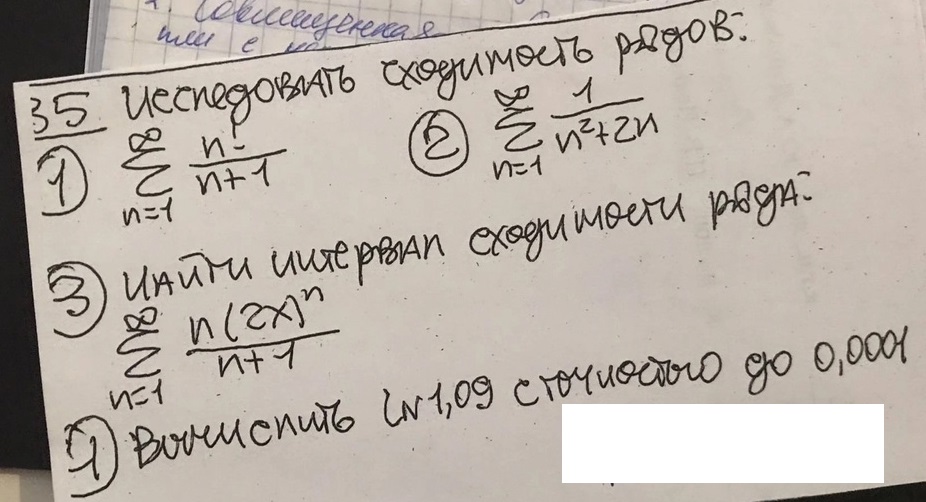 Совмещенная
или с
35 Исследовать сходимость рядов:
① \sum_{n=1}^{∞} \frac{n!}{n+1} ② \sum_{n=1}^{∞} \frac{1}{n²+2n}
③ Найти интервал сходимости ряда:
\sum_{n=1}^{∞} \frac{n(2x)^n}{n+1}
④ Вычислить ln 1,09 с точностью до 0,0001